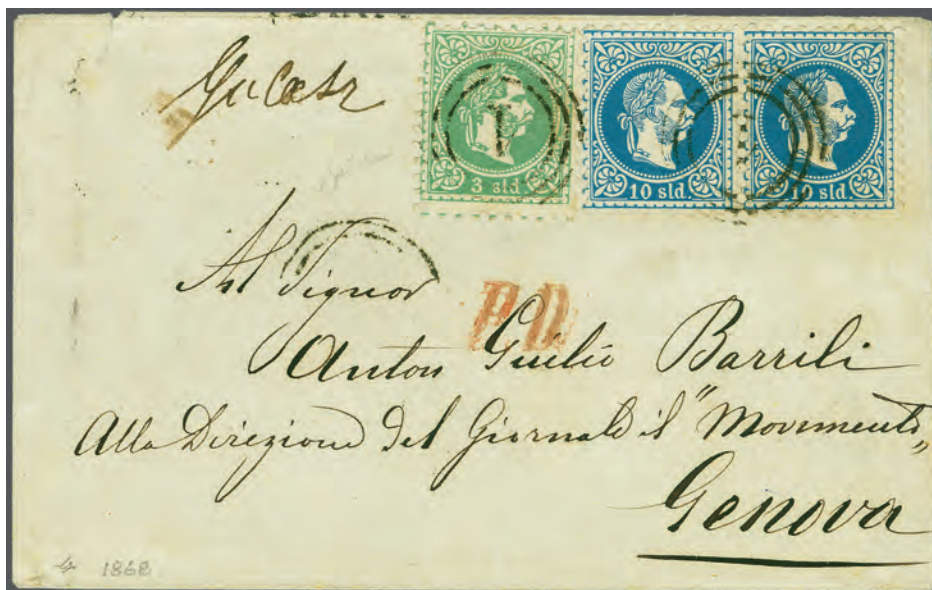 3 sld.
10 sld.
10 sld.
Al Signor
P.D.
Anton Giulio Barrili
Alla Direzione del Giornale il "Movimento„
Genova
1868